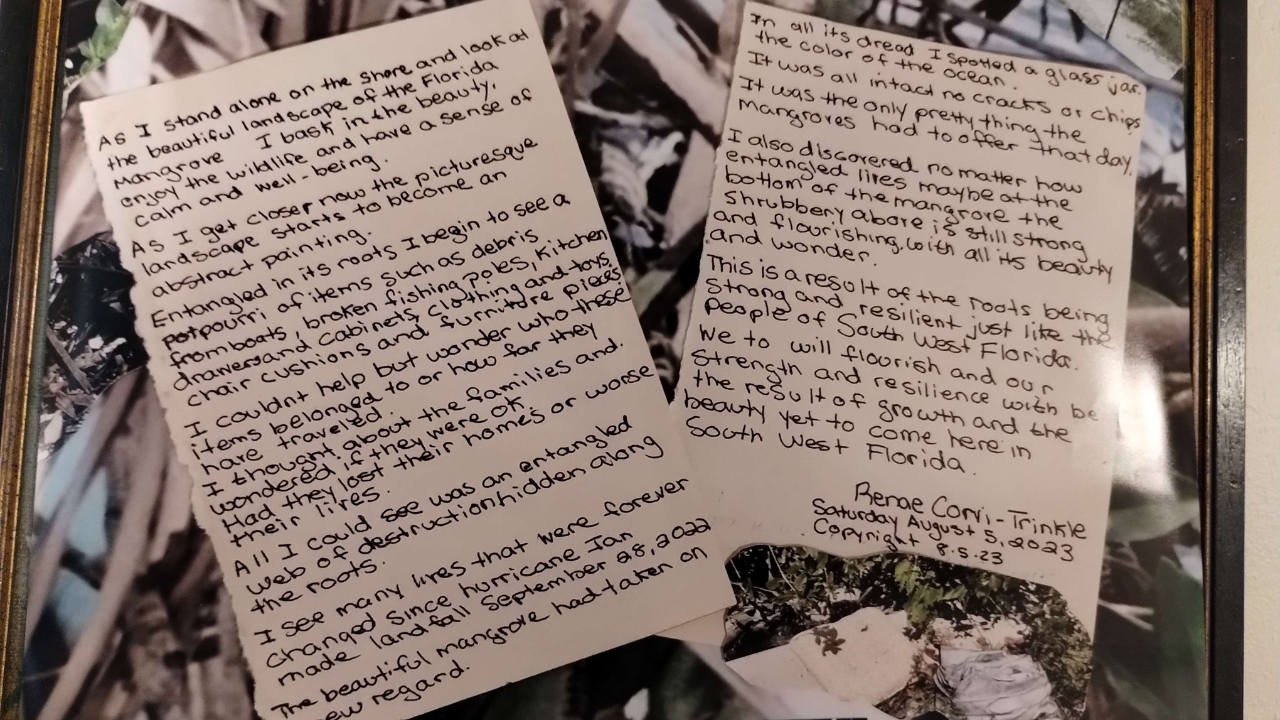 As I stand alone on the shore and look at
the beautiful landscape of the Florida
Mangrove I bask in the beauty,
enjoy the wildlife and have a sense of
calm and well-being.
As I get closer now the picturesque
landscape starts to become an
abstract painting.
Entangled in its roots I begin to see a
potpourri of items such as debris
from boats, broken fishing poles, kitchen
drawers and cabinets, clothing and toys,
chair cushions and furniture pieces
I couldnt help but wonder who these
items belonged to or how far they
have traveled.
I thought about the families and.
wondered if they were ok
Had they lost their home's or worse
their lives.
All I could see was an entangled
web of destruction hidden along
the roots.
I see many lives that were forever
changed since hurricane Ian
made landfall September 28, 2022
The beautiful mangrove had taken on
new regard.
In all its dread I spotted a glass jar.
the color of the ocean.
It was all intact no cracks or chips
It was the only pretty thing the
Mangroves had to offer that day.
I also discovered no matter how
entangled lives maybe at the
bottom of the mangrove the
shrubbery above is still strong
and flourishing, with all its beauty
and wonder.
This is a result of the roots being
strong and resilient just like the
people of South West Florida.
We to will flourish and our
strength and resilience with be
the result of growth and the
beauty yet to come here in
South West Florida.
Renae Corvi-Trinkle
Saturday August 5, 2023
Copyright 8.5.23